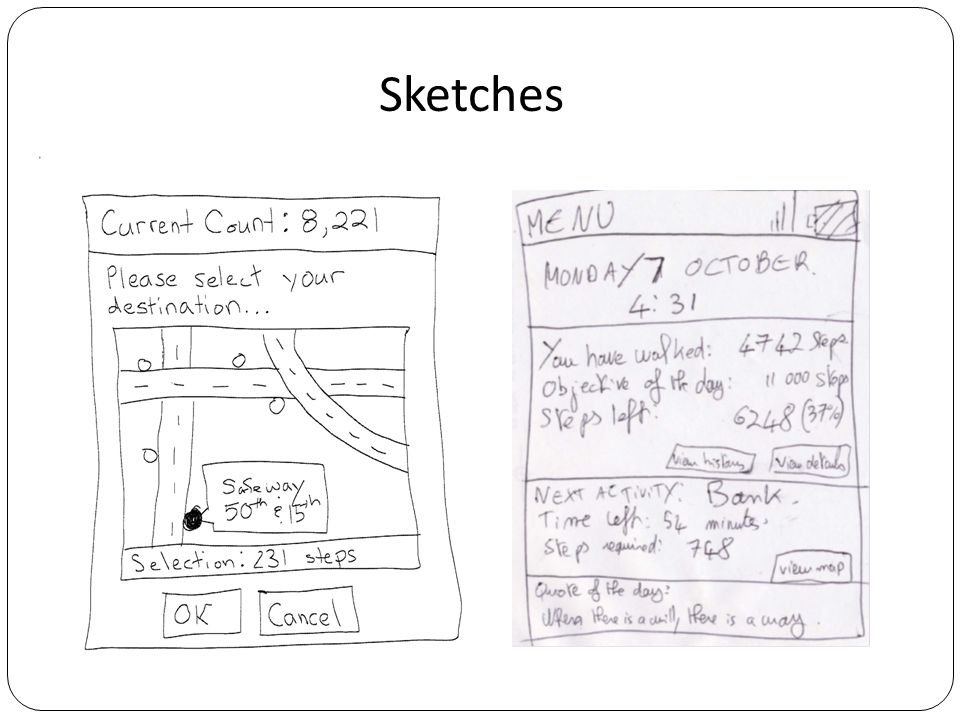 Sketches
Current Count: 8,221
Please select your
destination...
Safeway
50th & 15th
Selection: 231 steps
OK
Cancel
MENU
MONDAY 7 OCTOBER.
4:31
You have walked: 4742 steps
Objective of the day: 11 000 steps
Steps left: 6248 (37%)
View history
View details
NEXT ACTIVITY: Bank.
Time left: 54 minutes.
Steps required: 748
view map
Quote of the day:
there is a will, there is a way.